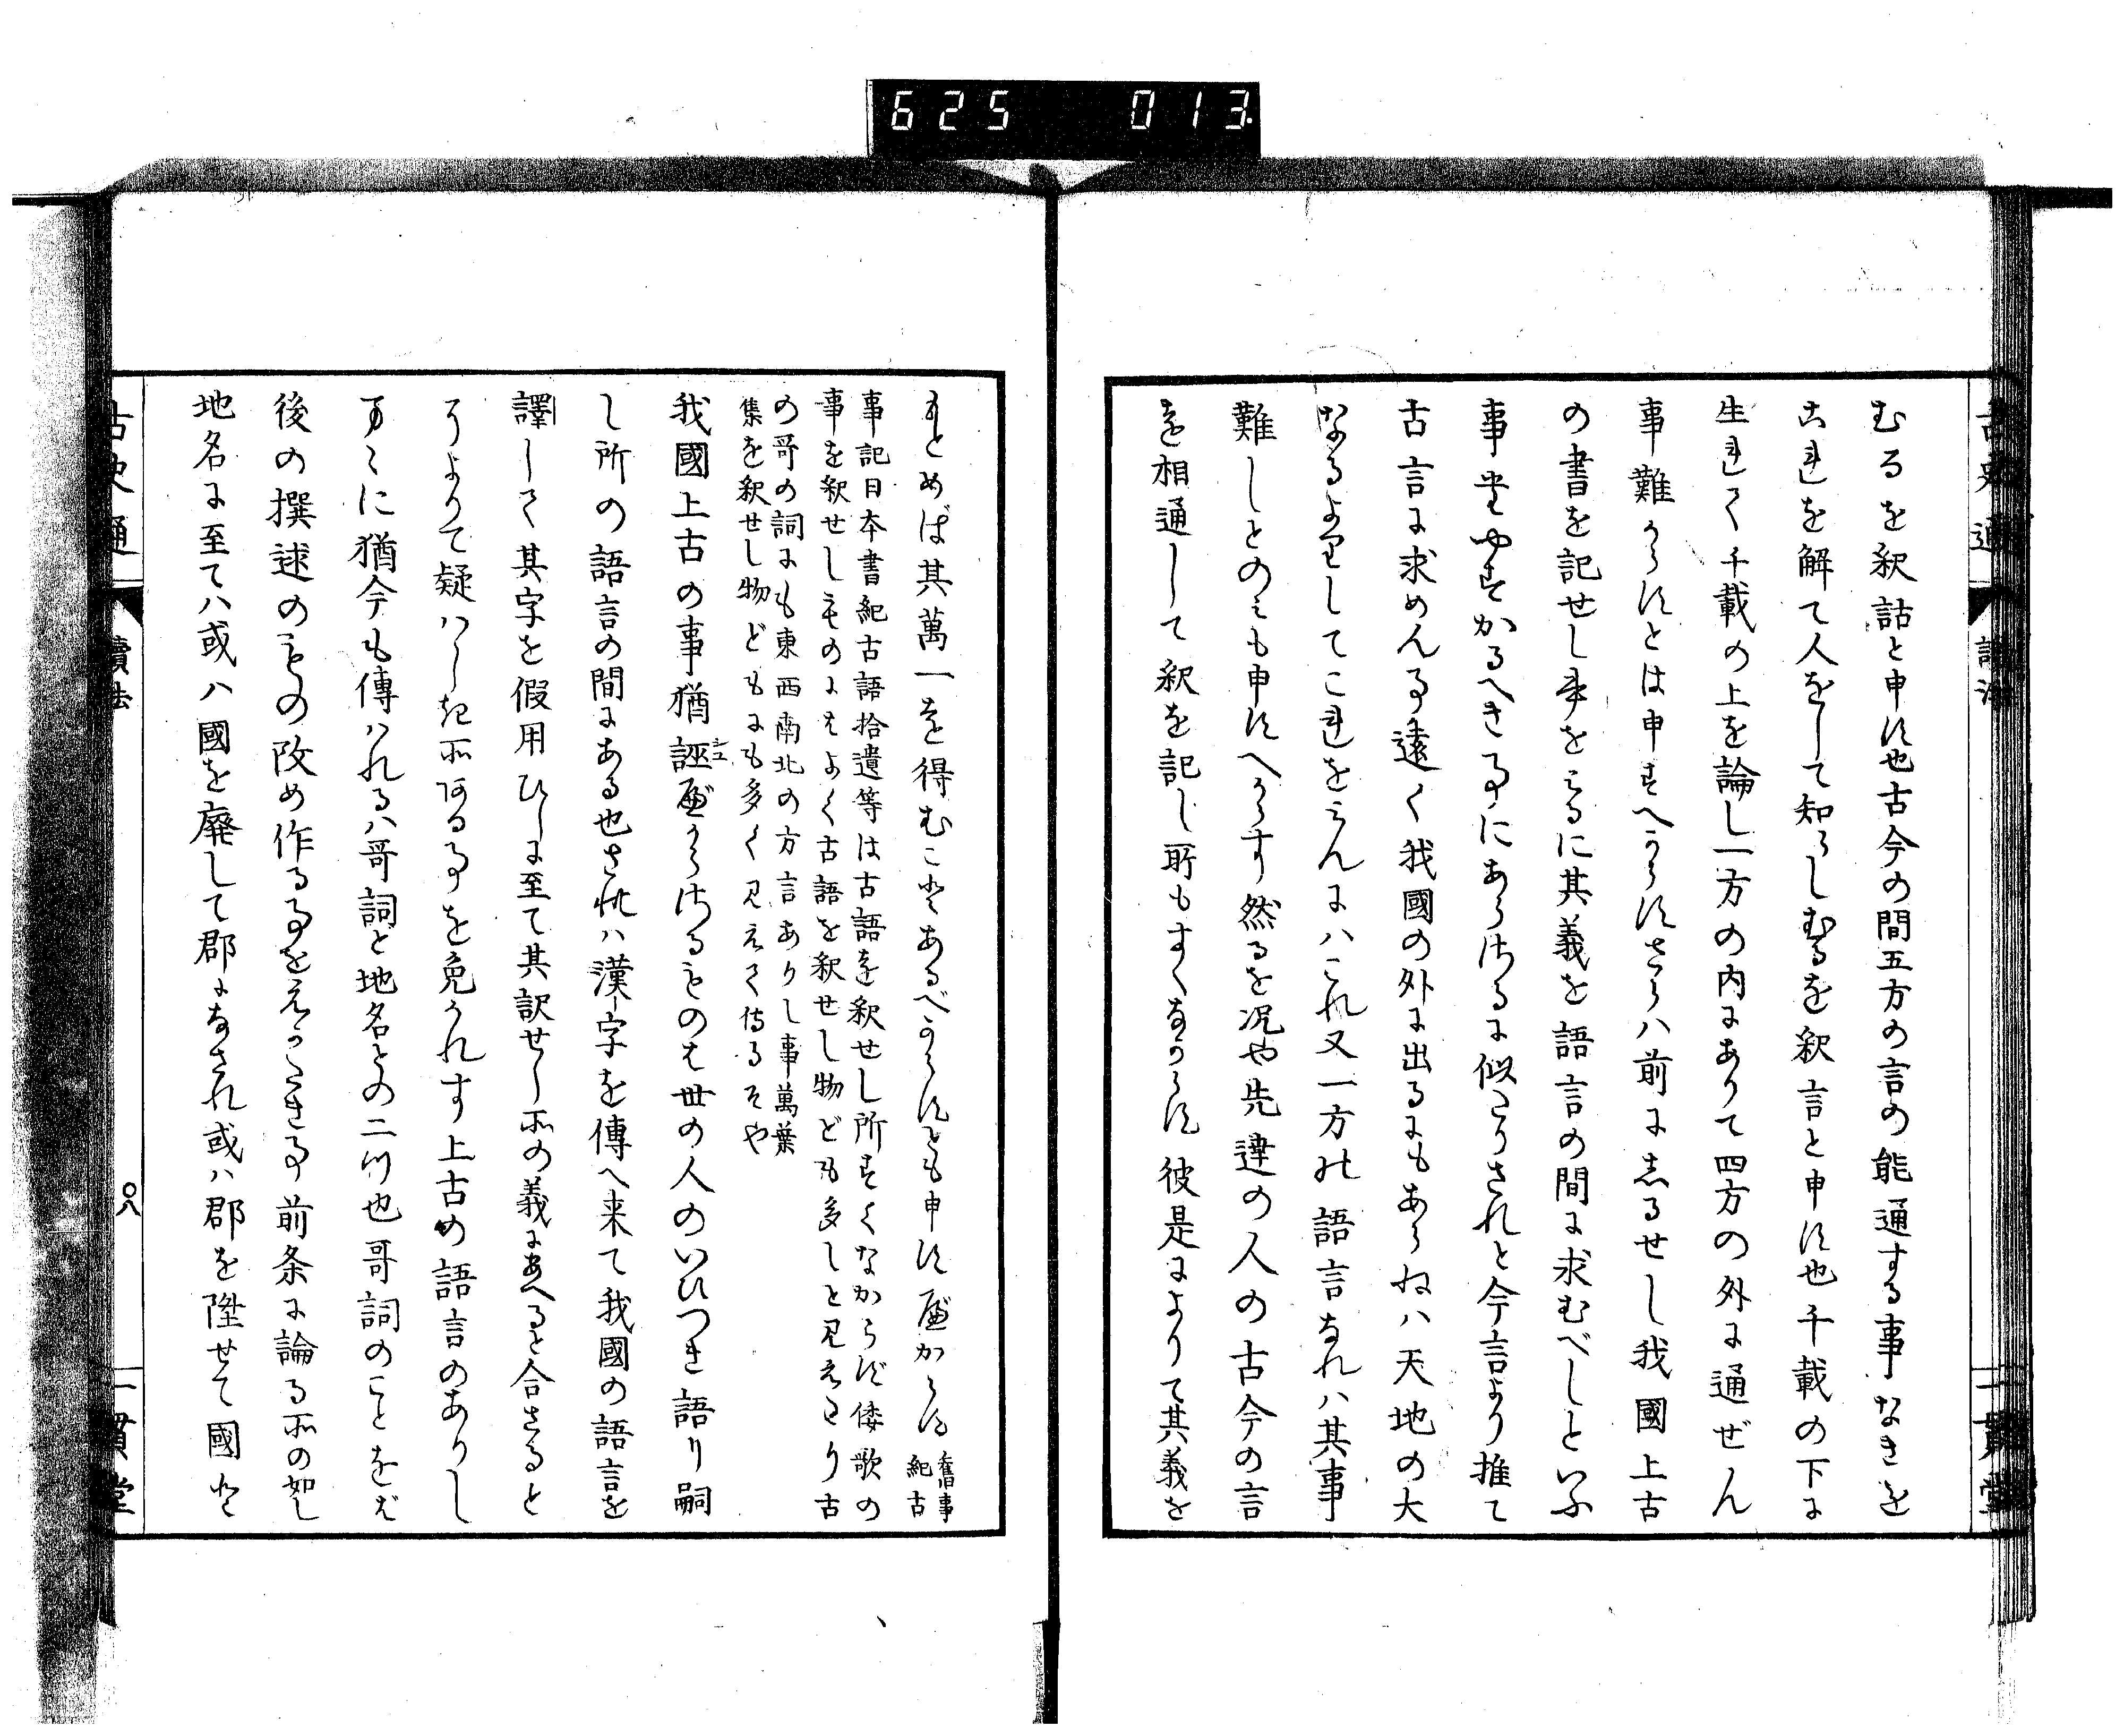 625 013
古史通 讀法 一貫堂
むるを釈詁と申す也古今の間五方の言の能通する事なきを
これを解て人をして知らしむるを釈言と申す也千載の下に
生れて千載の上を論し一方の内にありて四方の外に通ぜん
事難からすとは申すへからすさらハ前にしるせし我國上古
の書を記せし事をみるに其義を語言の間に求むべしといふ
事たやすかるへき事にあらさるに似たりされと今言より推て
古言に求めん事遠く我國の外に出るにもあらねハ天地の大
なるよりしてこれをみんにハこれ又一方の語言なれハ其事
難しとのみも申すへからす然るを况や先達の人の古今の言
を相通して釈を記し所もすくなからす彼是によりて其義を
もとめば其萬一を得むことあるべからすとも申すべからす
舊事
紀古
事記日本書紀古語拾遺等は古語を釈せし所すくなからず倭歌の
事を釈せしものにもよく古語を釈せし物ども多しと見えたり古
の哥の詞にも東西南北の方言ありし事萬葉
集を釈せし物どもにも多く見えて侍るそや
我國上古の事猶誣べからさるものは世の人のいひつき語り嗣
シユ
し所の語言の間にある也されハ漢字を傳へ来て我國の語言を
譯して其字を假用ひしに至て其訳せし所の義にあへると合さると
によりて疑ハしき所ある事を免かれす上古の語言のありし
まゝに猶今も傳ハれるハ哥詞と地名との二ツ也哥詞のことをば
後の撰述のものゝ改め作る事をえかたき事前条に論る所の如し
地名に至てハ或ハ國を廃して郡になされ或ハ郡を陞せて國と
古史通 讀法 〇八 一貫堂